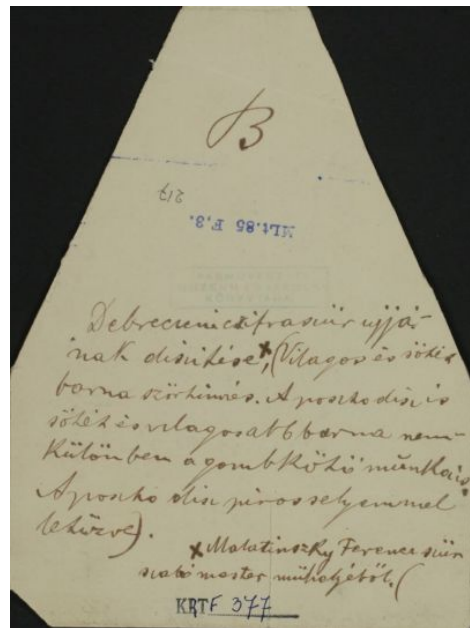 B
217
MLt.85 F.3.
Debreceni cifraszűr ujjá-
nak díszítése, x (Világos és sötét
barna szőrhímzés. A posztódísz is
sötét és világosabb barna nem-
különben a gombkötő munka is.
A posztó dísz piros selyemmel
letűzve).
x Malatinszky Ferenc szűr
szabó mester műhelyéből. (
KRTF 377